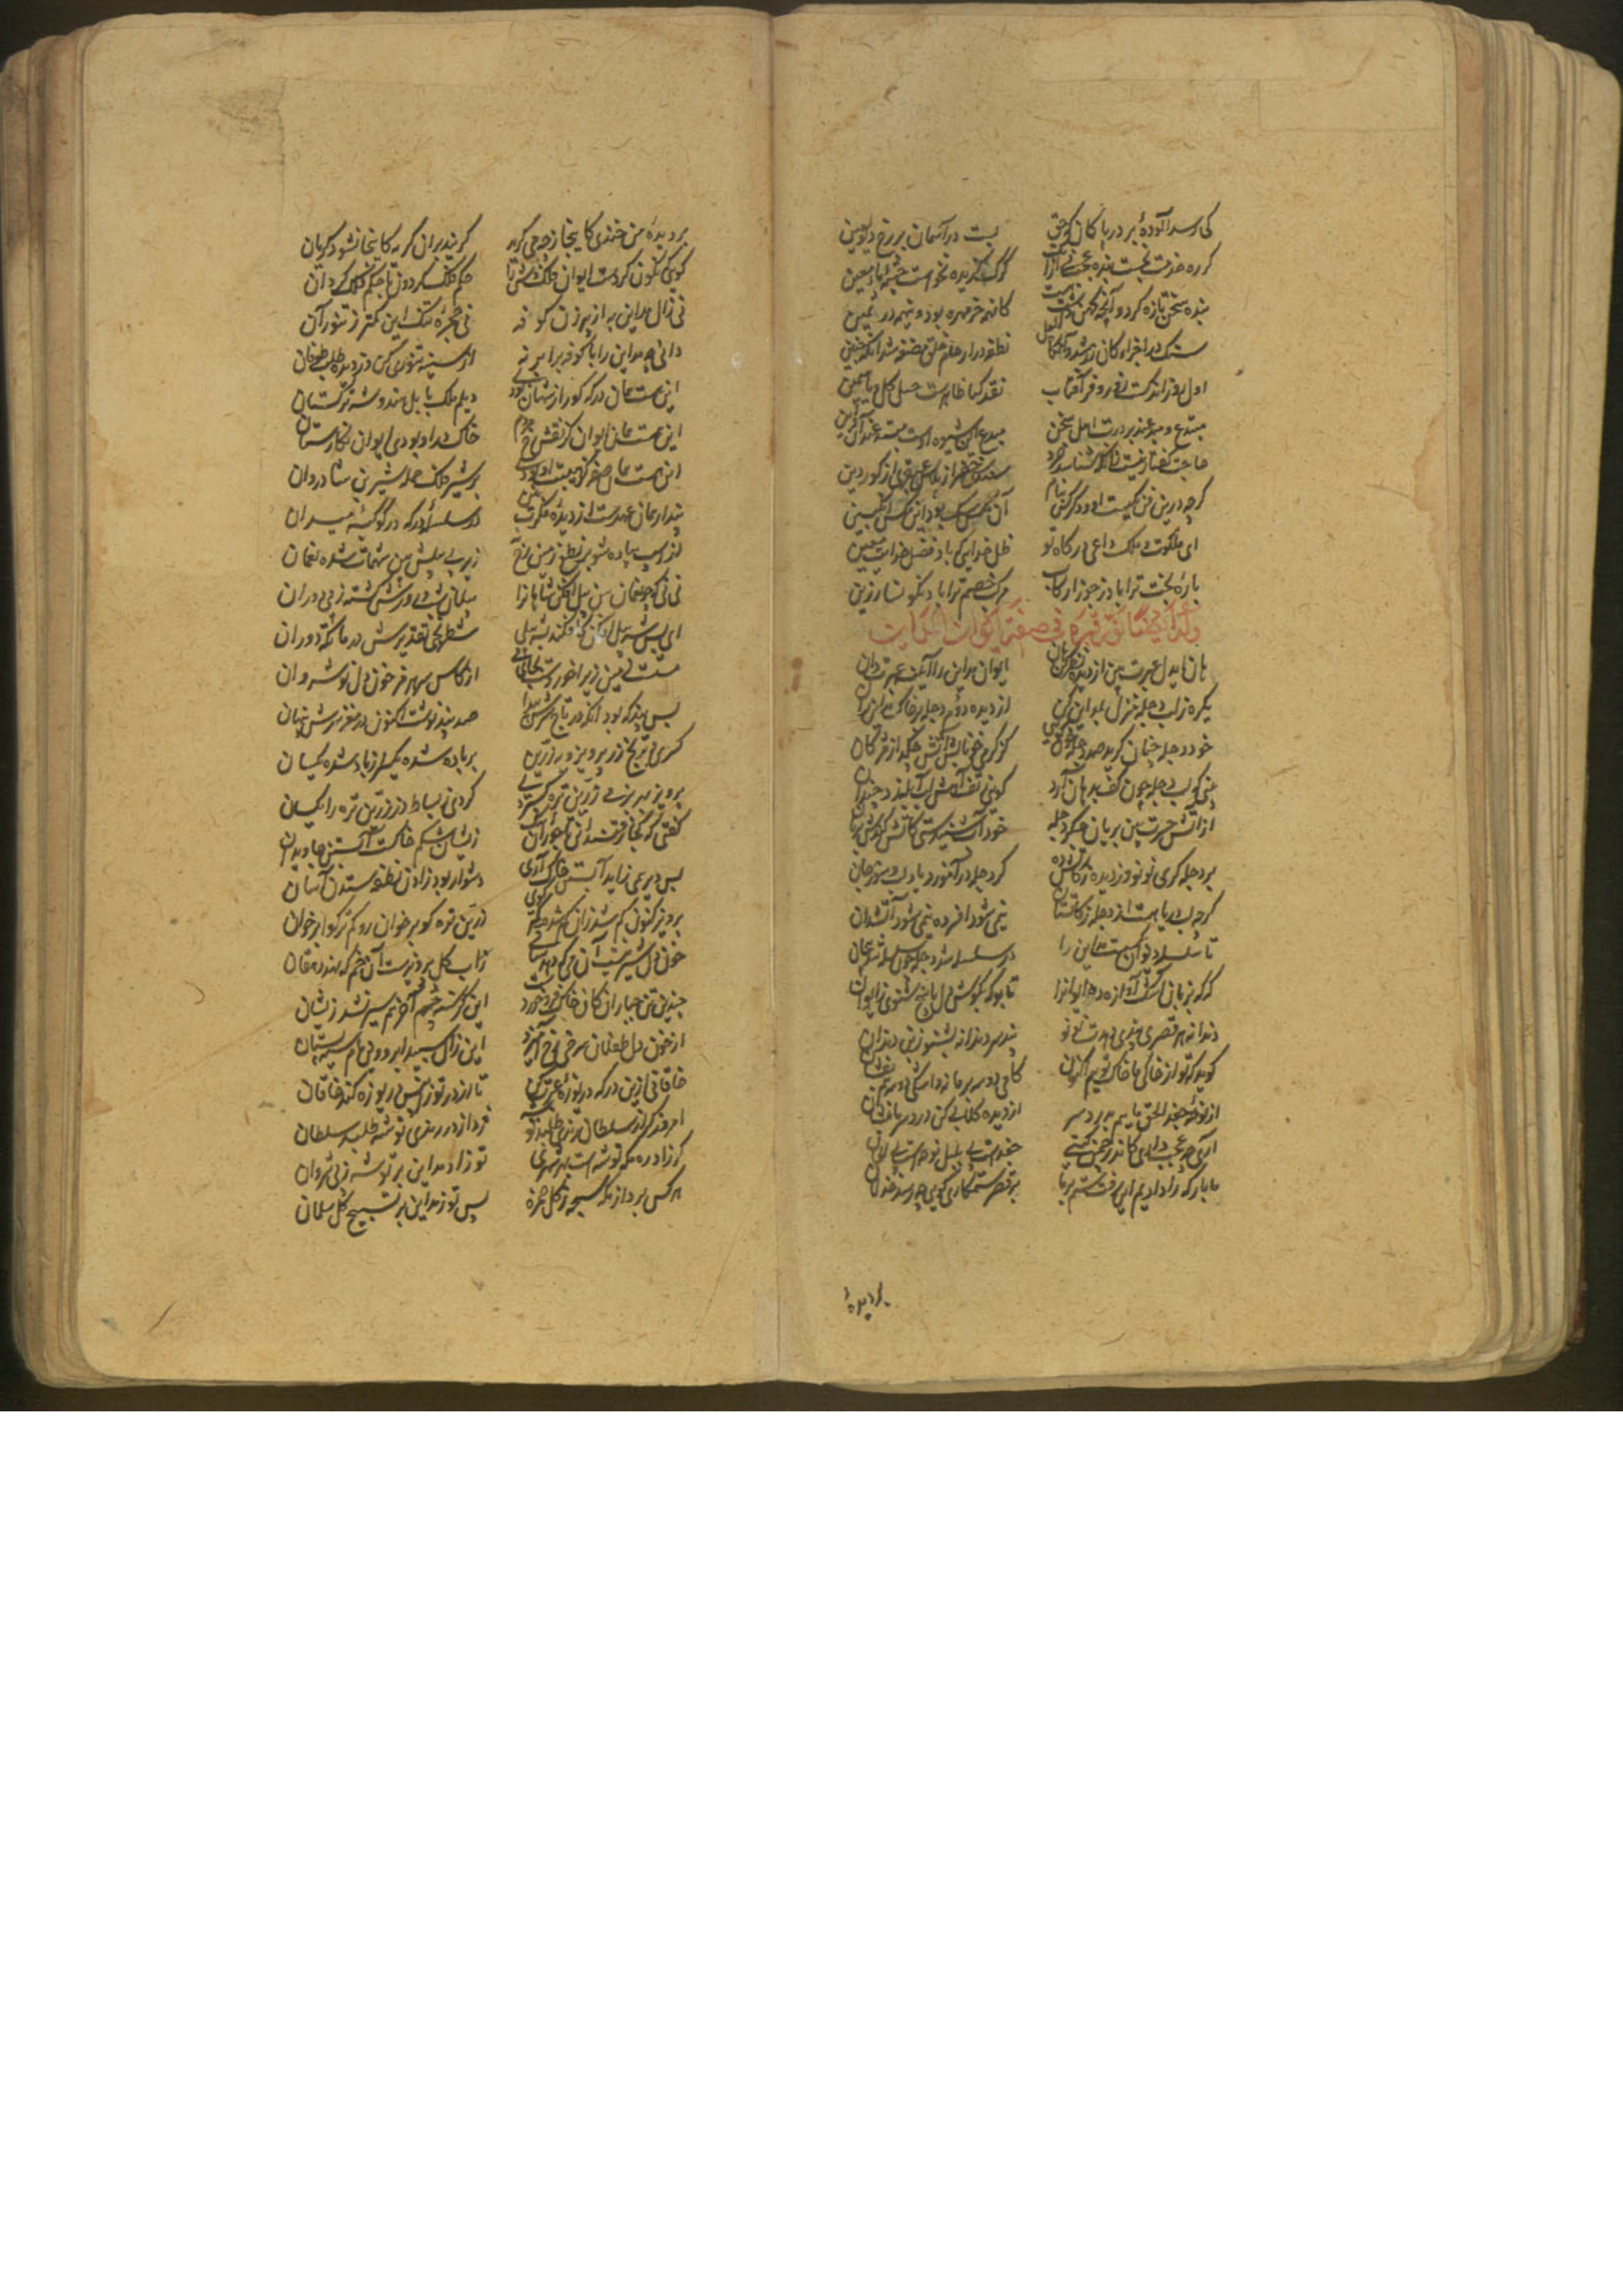 کی رسد آلودهٔ بر در پاکان که حق بست در آسمان بر رخ دیو لعین
گر ره خدمت نجست بنده عجب نی ازانک گرگ گزیده نخواست چشمهٔ ماء معین
بنده سخن تازه کرد وآنچه کهن داشت شست کان همه خرمهره بود وین همه در ثمین
سنگ در اجزاء کان زرد شد آنگاه لعل نطفه در ارحام خلق مضغه شد آنگه جنین
اول روز اندکست زیب و فر آفتاب
مبتدع و مبدعند بر درت اهل سخن مبدع این شیوه اوست مبتدعند آن و این
گرچه درین فن یکیست او و دگر کس بنام آن مگس سگ بود این مگس انگبین
ای ملکوت و ملک داعی درگاه تو ظل خدایی که باد فضل خدایت معین
بارهٔ بخت ترا باد ز جوزا رکاب مرکب خصم ترا باد نگونسار زین
هان ای دل عبرت بین از دیده نظر کن هان ایوان مداین را آیینه عبرت دان
یکره ز لب دجله منزل بمداین کن از دیده دوم دجله بر خاک مداین ران
خود دجله چنان گرید صد دجله خون گویی کز گرمی خونابش آتش چکد از مژگان
بینی که لب دجله چون کف بدهان آرد گویی ز تف آهش لب آبله زد چندان
از آتش حسرت بین بریان جگر دجله خود آب شنیدستی کاتش کندش بریان
بر دجله گری نو نو وز دیده زکاتش ده گرچه لب دریا هست از دجله زکات استان
گر دجله درآموزد باد لب و سوز جان نیمی شود افسرده نیمی شود آتشدان
تا سلسله ایوان بگسست مداین را در سلسله شد دجله چون سلسله شد پیچان
گه گه بزبان اشک آواز ده ایوانرا تا بو که بگوش دل پاسخ شنوی ز ایوان
دندانه هر قصری پندی دهدت نو نو پند سر دندانه بشنو ز بن دندان
گوید که تو از خاکی ما خاک توییم اکنون گامی دو سه بر ما نه اشکی دو سه هم بفشان
از نوحه جغد الحق ماییم بدرد سر از دیده گلابی کن درد سر ما بنشان
آری چه عجب داری کاندر چمن گیتی جغدست پی بلبل نوحه است پی الحان
ما بارگه دادیم این رفت ستم بر ما بر قصر ستمکاران گویی چه رسد خذلان
بر دیدهٔ
بر دیدهٔ من خندی کاینجا ز چه می گرید گریند بران کریه کاینجا نشود گریان
گویی که نگون کردست ایوان فلک وش را حکم فلک گردون یا حکم فلک گردان
نی زال مداین به از پیرزن کوفه نی حجرهٔ تنگ این کمتر ز تنور آن
دانی چه مداین را با کوفه برابر نه از سینه تنوری کن وز دیده طلب طوفان
این هست همان درگه کورا ز شهان بودی دیلم ملک بابل هندو شه ترکستان
این هست همان ایوان کز نقش رخ مردم خاک در او بودی ایوان نگارستان
این هست همان صفه کز هیبت او بردی بر شیر فلک حمله شیر تن شادروان
پندار همان عهدست از دیدهٔ فکرت بین در سلسلهٔ درگه در کوکبهٔ میدان
از اسب پیاده شو بر نطع زمین رخ نه زیر پی پیلش بین شهمات شده نعمان
نی نی که چو نعمان بین پیل افکن شاهانرا پیلان شب و روزش کشته ز پی دوران
ای بس شه پیل افکن کافکند بشه پیلی شطرنجی تقدیرش در ماتگه دوران
مستست زمین زیرا خوردست بجای می از کاس سر هرمز خون دل نوشروان
بس پند که بود آنگه در تاج سرش پیدا صد پند نوست اکنون در مغز سرش پنهان
کسری و ترنج زر پرویز و به زرین بر باد شده یکسر از یاد شده یکسان
پرویز بهر بزمی زرین تره گستردی کردی ز بساط زر زرین تره را بستان
گفتی که کجا رفتند آن تاجوران اینک ز ایشان شکم خاکست آبستن جاویدان
بس دیر همی زاید آبستن خاک آری دشوار بود زادن نطفه ستدن آسان
پرویز کنون گم شد زان گمشده کمتر گوی زرین تره کو بر خوان رو کم ترکوا بر خوان
خون دل شیرینست آن می که دهد رز بن ز آب و گل پرویزست آن خم که نهد دهقان
چندین تن جباران کاین خاک فرو خورد این گرسنه چشم آخر هم سیر نشد ز ایشان
از خون دل طفلان سرخاب رخ آمیزد این زال سپید ابرو وین مام سیه پستان
خاقانی ازین درگه دریوزهٔ عبرت کن تا از در تو زین پس دریوزه کند خاقان
امروز گر از سلطان رندی طلبد توشه فردا ز در رندی توشه طلبد سلطان
گر زاد ره مکه توشه است بهر شهری تو زاد مداین بر توشه ز پی شروان
هر کس برد از مکه سبحه ز گل حمزه پس تو ز مداین بر تسبیح گل سلمان